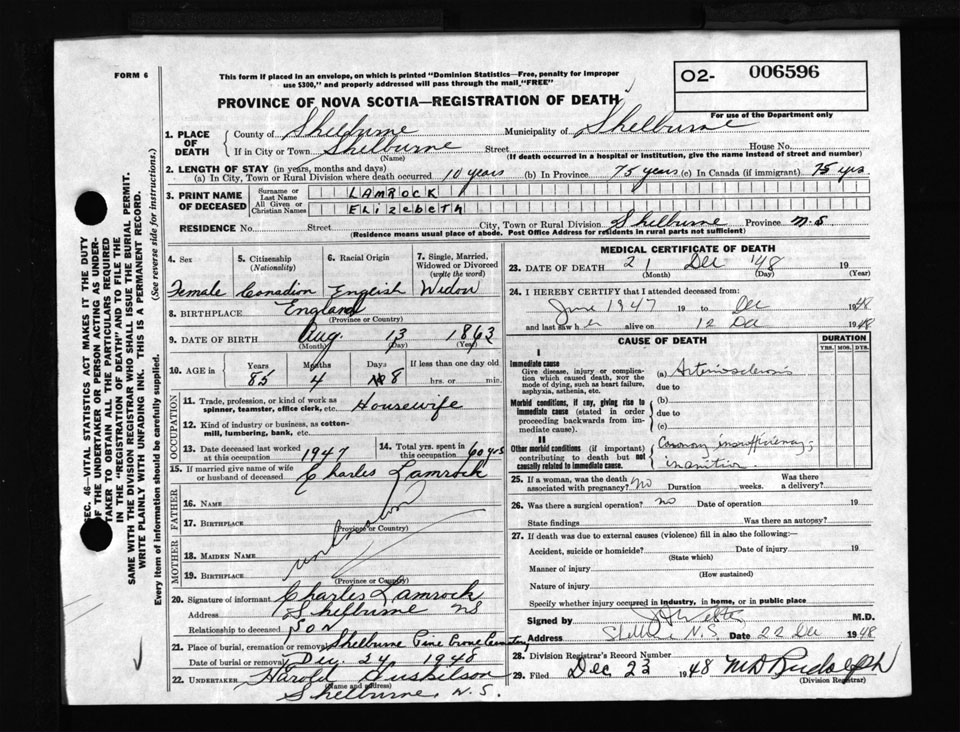 FORM 6
This form if placed in an envelope, on which is printed "Dominion Statistics—Free, penalty for improper
use $300," and properly addressed will pass through the mail "FREE"
O2- 006596
For use of the Department only
PROVINCE OF NOVA SCOTIA—REGISTRATION OF DEATH
SEC. 46—VITAL STATISTICS ACT MAKES IT THE DUTY
OF THE UNDERTAKER OR PERSON ACTING AS UNDER-
TAKER TO OBTAIN ALL THE PARTICULARS REQUIRED
IN THE "REGISTRATION OF DEATH" AND TO FILE THE
SAME WITH THE DIVISION REGISTRAR WHO SHALL ISSUE THE BURIAL PERMIT.
WRITE PLAINLY WITH UNFADING INK. THIS IS A PERMANENT RECORD.
Every item of information should be carefully supplied. (See reverse side for instructions.)
1. PLACE OF DEATH
County of Shelburne Municipality of Shelburne
If in City or Town Shelburne Street House No.
(Name) (If death occurred in a hospital or institution, give the name instead of street and number)
2. LENGTH OF STAY (in years, months and days)
(a) In City, Town or Rural Division where death occurred 10 years (b) In Province 75 years (c) In Canada (if immigrant) 75 yrs
3. PRINT NAME OF DECEASED
Surname or Last Name LAMROCK
All Given or Christian Names ELIZEBETH
RESIDENCE No. Street City, Town or Rural Division Shelburne Province N.S
(Residence means usual place of abode. Post Office Address for residents in rural parts not sufficient)
4. Sex 5. Citizenship (Nationality) 6. Racial Origin 7. Single, Married, Widowed or Divorced (write the word)
Female Canadian English Widow
8. BIRTHPLACE England
(Province or Country)
9. DATE OF BIRTH Aug. 13 1863
(Month) (Day) (Year)
10. AGE in Years Months Days If less than one day old
85 4 8 hrs. or min.
OCCUPATION
11. Trade, profession, or kind of work as
spinner, teamster, office clerk, etc. Housewife
12. Kind of industry or business, as cotton-
mill, lumbering, bank, etc.
13. Date deceased last worked at this occupation 1947 14. Total yrs. spent in this occupation 60 yrs
15. If married give name of wife
or husband of deceased Charles Lamrock
FATHER
16. Name
17. Birthplace
(Province or Country)
unknown
MOTHER
18. Maiden Name
19. Birthplace
(Province or Country)
20. Signature of informant Charles Lamrock
Address Shelburne NS
Relationship to deceased Son
21. Place of burial, cremation or removal Shelburne Pine Grove Cemetery
Date of burial or removal Dec. 24 1948
22. Undertaker Harold
(Name and address)
Shelburne, N.S.
MEDICAL CERTIFICATE OF DEATH
23. DATE OF DEATH 21 Dec '48 19
(Month) (Day) (Year)
24. I HEREBY CERTIFY that I attended deceased from:
June 1947 19 to Dec 1948
and last saw her alive on 12 Dec 1948
CAUSE OF DEATH DURATION
YRS. MOS. DYS.
I
Immediate cause
Give disease, injury or complica-
tion which caused death, not the
mode of dying, such as heart failure,
asphyxia, asthenia, etc.
(a) Arteriosclerosis
due to
Morbid conditions, if any, giving rise to
immediate cause (stated in order
proceeding backwards from im-
mediate cause).
(b)
due to
(c)
II
Other morbid conditions (if important)
contributing to death but not
causally related to immediate cause.
Coronary insufficiency;
inanition
25. If a woman, was the death
associated with pregnancy? no Duration weeks. Was there a delivery?
26. Was there a surgical operation? no Date of operation 19
State findings Was there an autopsy?
27. If death was due to external causes (violence) fill in also the following:—
Accident, suicide or homicide? Date of injury 19
(State which)
Manner of injury
(How sustained)
Nature of injury
Specify whether injury occurred in industry, in home, or in public place
Signed by M.D.
Address Shelburne N.S. Date 22 Dec 1948
28. Division Registrar's Record Number
29. Filed Dec 23 1948 M D Rudolph
(Division Registrar)